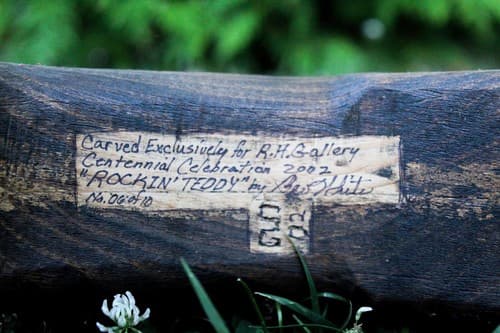 Carved Exclusively for R.H. Gallery
Centennial Celebration 2002
"ROCKIN' TEDDY" by White
No. 06 of 10
GW
02